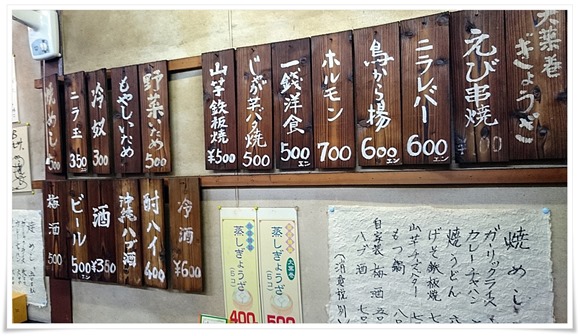 大葉巻
ぎょうざ
えび串焼
ニラレバー
600
エン
鳥から揚
600
エン
ホルモン
700
一銭洋食
500
エン
じゃが芋バタ焼
500
山芋鉄板焼
¥500
野菜いため
500
もやしいため
冷奴
300
ニラ玉
350
焼めし
冷酒
¥600
酎ハイ
400
沖縄ハブ酒
酒
¥350
ビール
500
エン
梅酒
500
大葉巻
蒸しぎょうざ
500
蒸しぎょうざ
400
焼めし
ガーリックライス
カレーチャーハン
焼うどん
げそ鉄板焼
山芋チーズバター
もつ鍋
自家製 梅酒
ハブ酒